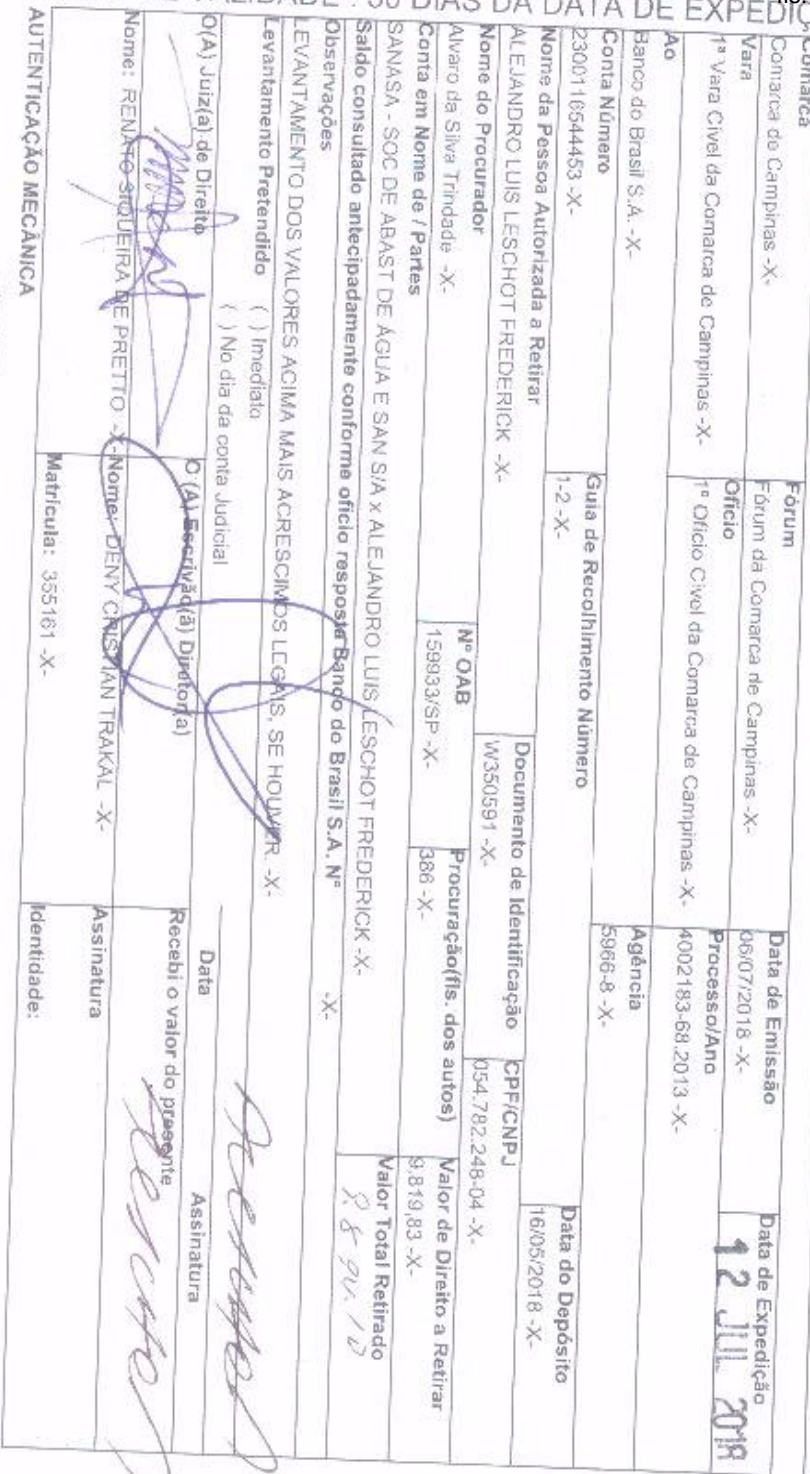 VALIDADE : 30 DIAS DA DATA DE EXPEDIÇ
Comarca
Comarca de Campinas -X-
Fórum
Fórum da Comarca de Campinas -X-
Data de Emissão
06/07/2018 -X-
Data de Expedição
12 JUL 2018
Vara
1ª Vara Cível da Comarca de Campinas -X-
Ofício
1º Ofício Cível da Comarca de Campinas -X-
Processo/Ano
4002183-68.2013 -X-
Ao
Banco do Brasil S.A. -X-
Agência
5966-8 -X-
Conta Número
2300116544453 -X-
Guia de Recolhimento Número
1-2 -X-
Data do Depósito
16/05/2018 -X-
Nome da Pessoa Autorizada a Retirar
ALEJANDRO LUIS LESCHOT FREDERICK -X-
Documento de Identificação
W350591 -X-
CPF/CNPJ
054.782.248-04 -X-
Nome do Procurador
Alvaro da Silva Trindade -X-
Nº OAB
159933/SP -X-
Procuração(fls. dos autos)
386 -X-
Valor de Direito a Retirar
9.819,83 -X-
Conta em Nome de / Partes
SANASA - SOC DE ABAST DE ÁGUA E SAN S/A x ALEJANDRO LUIS LESCHOT FREDERICK -X-
Valor Total Retirado
Saldo consultado antecipadamente conforme ofício resposta Banco do Brasil S.A. Nº -X-
Observações
LEVANTAMENTO DOS VALORES ACIMA MAIS ACRESCIMOS LEGAIS, SE HOUVER. -X-
Levantamento Pretendido ( ) Imediato
( ) No dia da conta Judicial
Data
Assinatura
O(A) Juiz(a) de Direito
O (A) Escrivão(ã) Diretor(a)
Recebi o valor do presente
Nome: RENATO SIQUEIRA DE PRETTO -X-
Nome: DENY CRISTIAN TRAKAL -X-
Assinatura
Matrícula: 355161 -X-
Identidade:
AUTENTICAÇÃO MECÂNICA